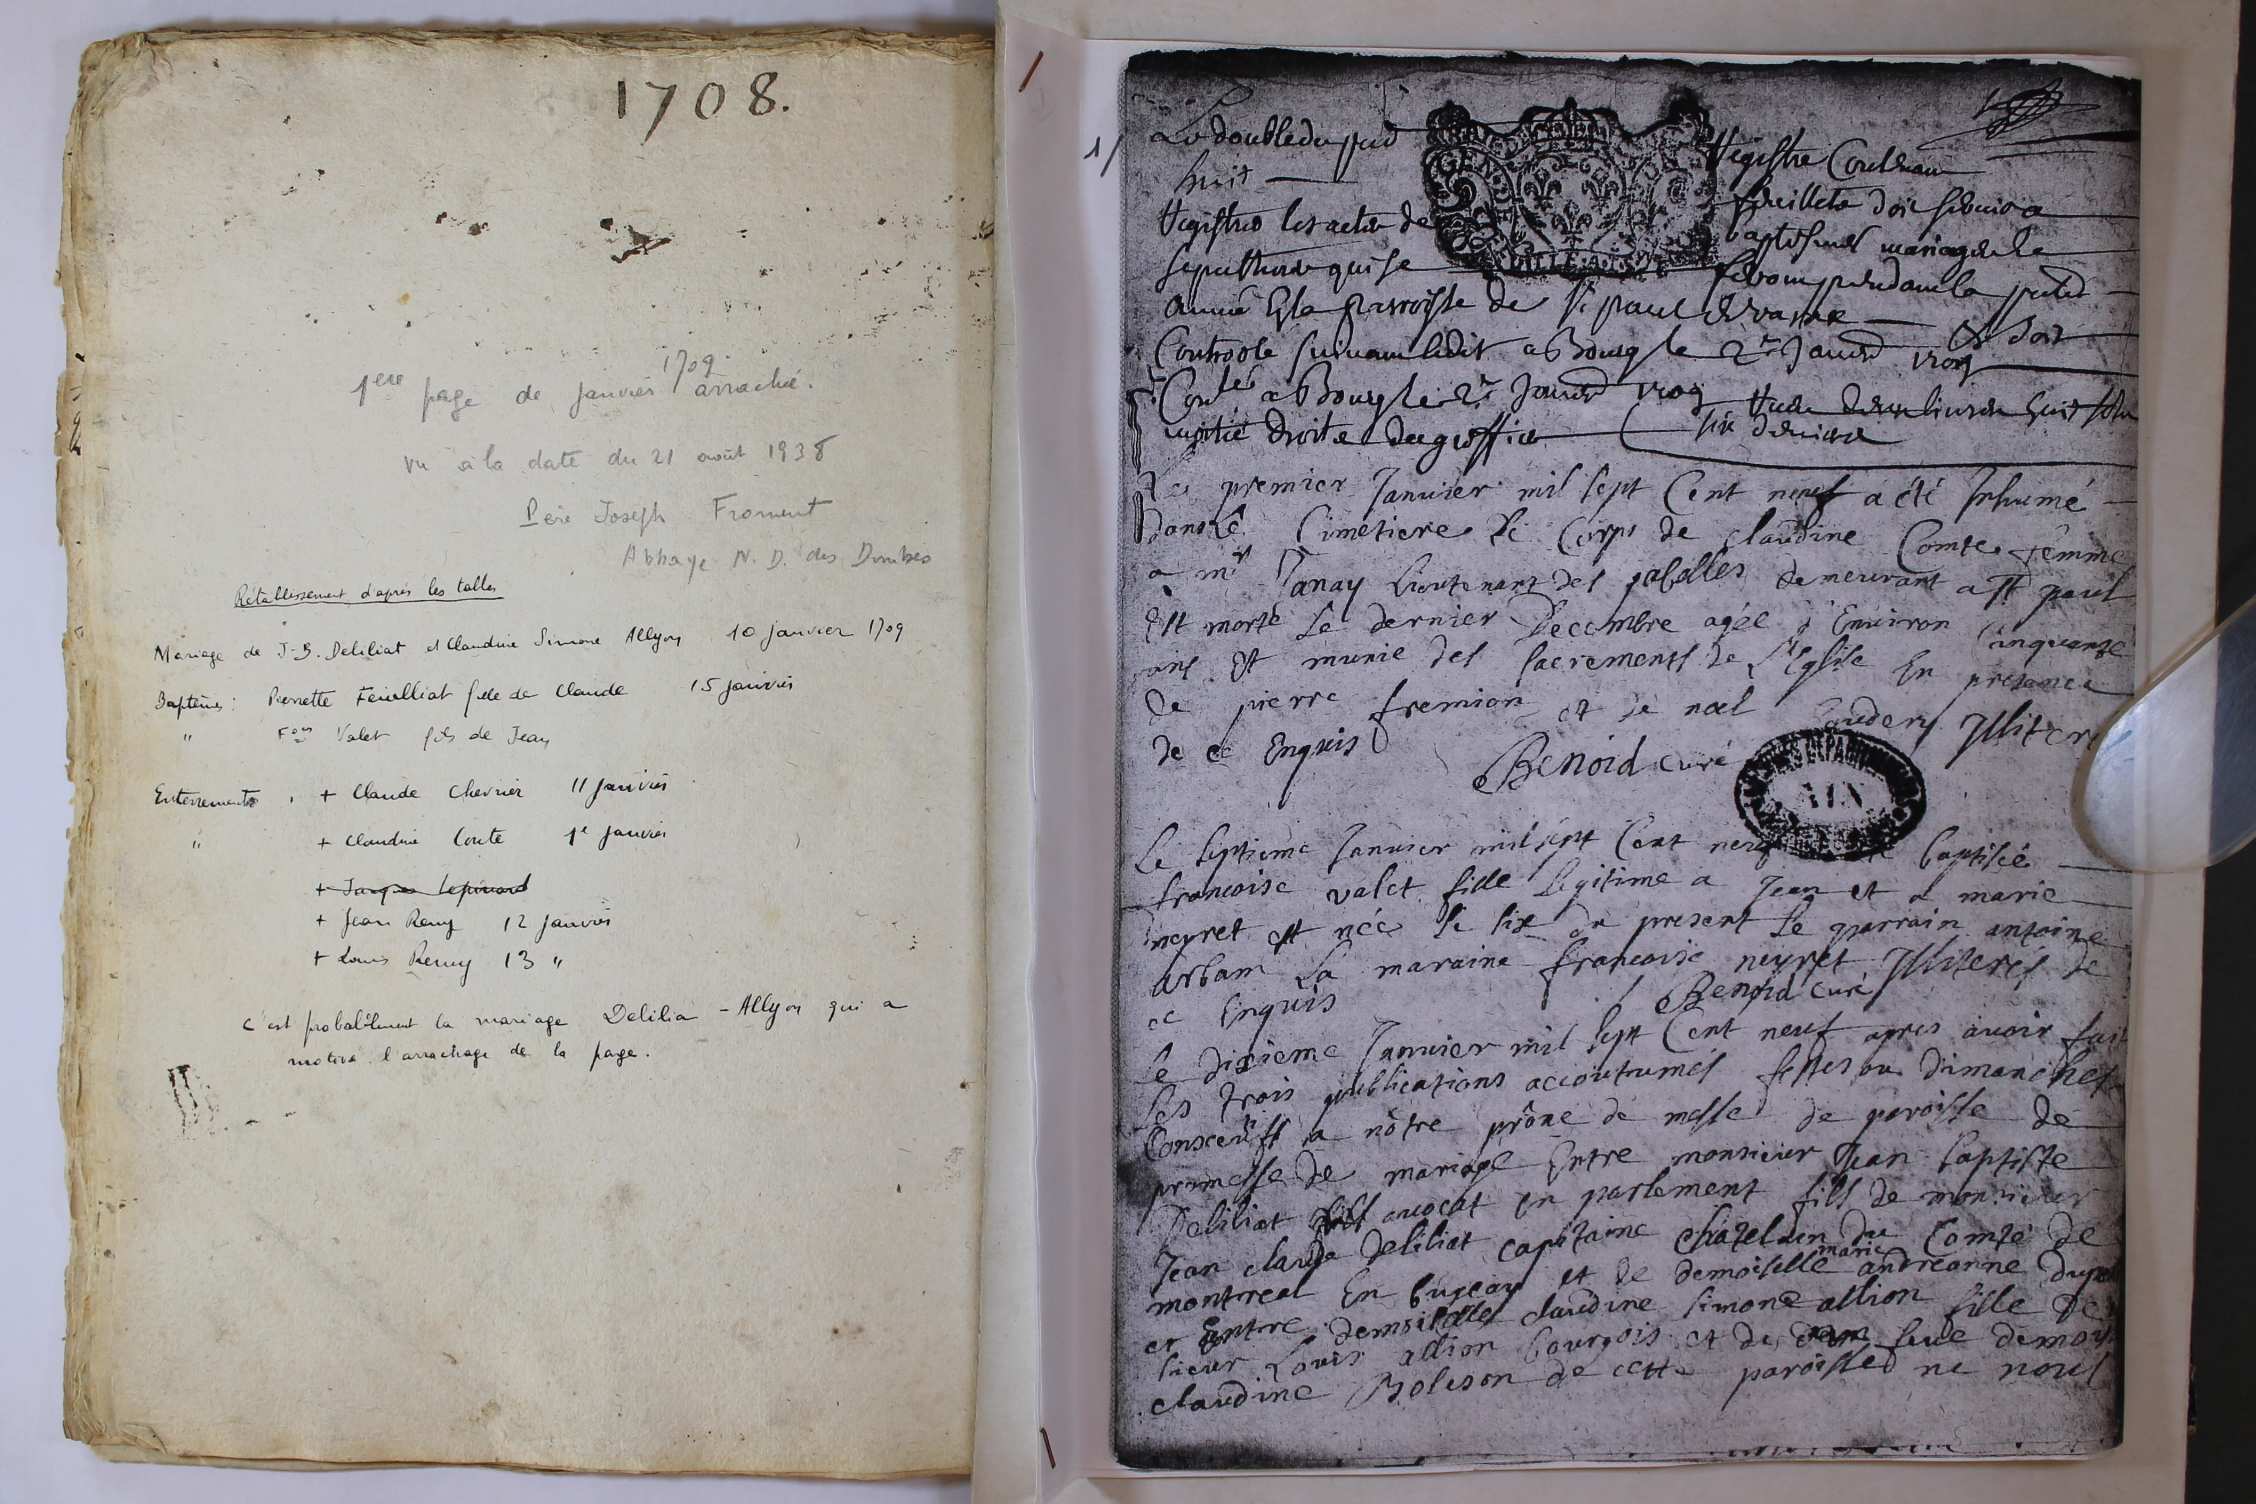 1708.
1ere page de janvier 1709 arraché.
vu à la date du 21 août 1938
Père Joseph Froment
Abbaye N. D. des Dombes
Rétablissement d'après les tables
Mariage de J-B. Deliliat et Claudine Simone Allyon 10 janvier 1709
Baptêmes : Pierrette Feuilliat fille de Claude 15 janvier
" Fois Valet fils de Jean
Enterrements : + Claude Chevrier 11 janvier
" + Claudine Conte 1e janvier
+ Jacques Lepinard
+ Jean Remy 12 janvier
+ Louis Remy 13 "
C'est probablement la mariage Delilia - Allyon qui a
motivé l'arrachage de la page.
1/
Le double du pnt Registre Contenant
huit feuillets doit servir a
Registrer les actes de baptesmes mariages
sepultures qui se feront pendant la pnte
année En la parroisse de St paul de varax Et soit
Controole suivant ledit a Bourg le 2r Janvr 1709
Conlé a Bourg le 2r Janvr 1709 Receu deux livres huit sols
moitié droits du greffier six deniers
Le premier Janvier mil sept Cent neuf a été Inhumé
dans Le Cimetiere Le Corps de claudine Comte femme
a mr Tanay Lieutenant des gabelles demeurant a st paul
Est morte Le dernier Decembre agée d'Environ Cinquante
ans Et munie des sacrements de L'Eglise En presence
de pierre fremion et de noel
de ce Enquis Illiteré
Benoid curé
AIN
Le septieme Janvier mil sept Cent neuf baptisée
francoise valet fille legitime a Jean et a marie
neyret est née le six du present Le parrain antoine
arbam La maraine francoise neyret Illiterés de
ce Enquis Benoid curé
Le dixieme Janvier mil sept Cent neuf apres avoir fait
Les trois publications accoutumés festes ou dimanches
Consecutifs a nôtre prône de messe de paroisse de
promesse de mariage Entre monsieur Jean baptiste
Deliliat avocat en parlement fils de monsieur
Jean claude Deliliat capitaine châtelain du Comté de
montreal En bugeay et de demoiselle marie andreanne
et Entre demoiselle claudine simone allion fille de
sieur Louis allion bourgois et de feue demoi
claudine Boleson de cette paroisse ne nous